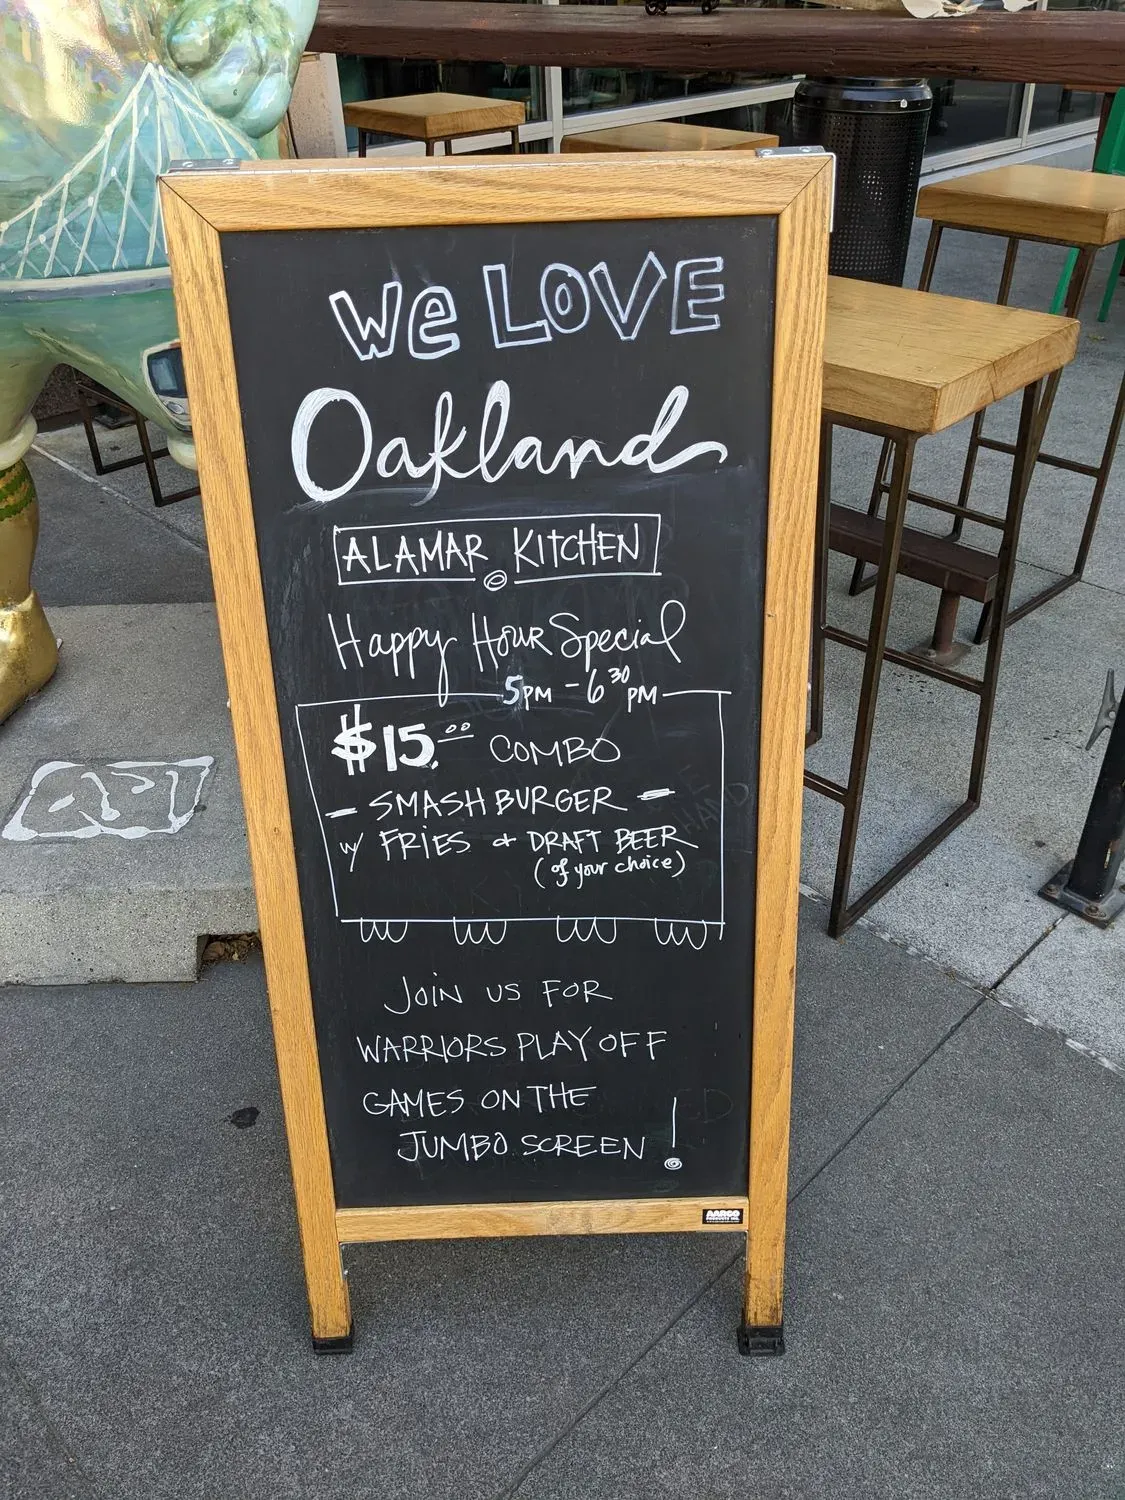 We LOVE
Oakland
ALAMAR KITCHEN
Happy Hour Special
5PM - 6³⁰ PM
$15.00 COMBO
- SMASH BURGER -
w/ FRIES & DRAFT BEER
(of your choice)
JOIN US FOR
WARRIORS PLAY OFF
GAMES ON THE
JUMBO SCREEN!
AARCO
PRODUCTS INC.